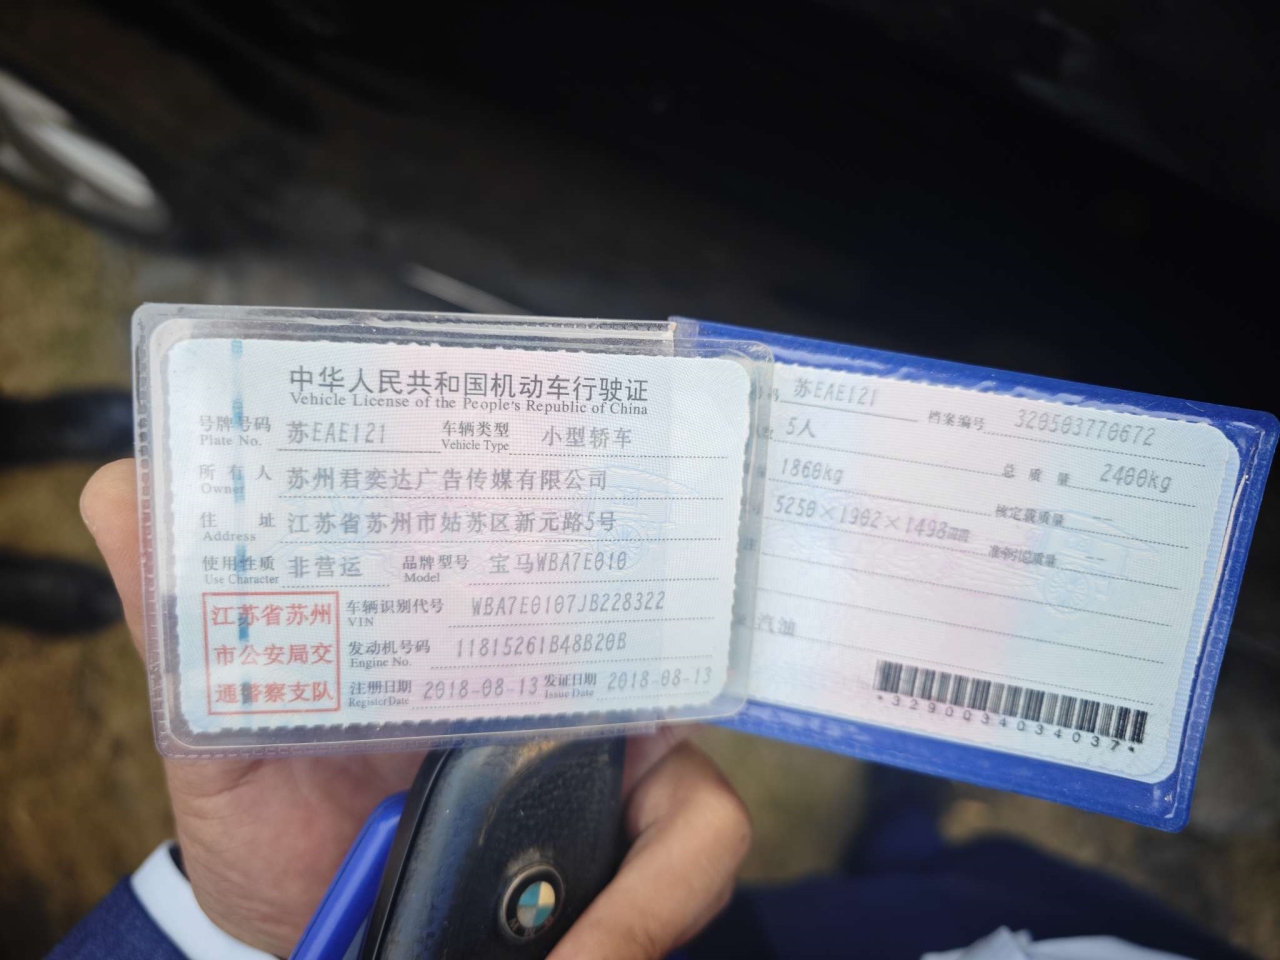 中华人民共和国机动车行驶证
Vehicle License of the People's Republic of China
号牌号码 苏EAE121 车辆类型 小型轿车
Plate No. Vehicle Type
所有人 苏州君奕达广告传媒有限公司
Owner
住址 江苏省苏州市姑苏区新元路5号
Address
使用性质 非营运 品牌型号 宝马WBA7E010
Use Character Model
江苏省苏州
市公安局交
通警察支队
车辆识别代号 WBA7E0107JB228322
VIN
发动机号码 11815261B48B20B
Engine No.
注册日期 2018-08-13 发证日期 2018-08-13
Register Date Issue Date
苏EAE121 档案编号 320503770672
5人 总质量 2400kg
1860kg 核定载质量 —
5250×1902×1498 —
汽油
*3290034034037*